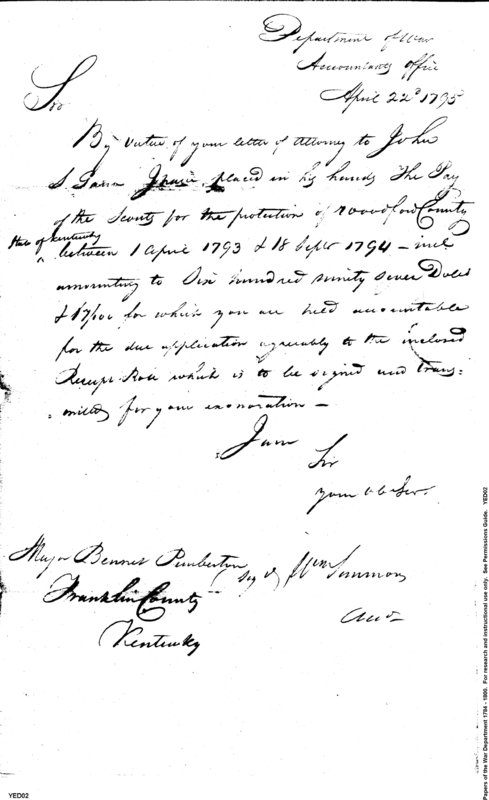 Department of War
Accountants office
April 22d 1795
Sir
By virtue of your letter of attorney to John
S. placed in his hands the Pay
of the Scouts for the protection of Woodford County
State of Kentucky
between 1 april 1793 & 18 Septr 1794 – incl
amounting to Six hundred seventy seven Dolls
& 17/100 for which you are held accountable
for the due application agreeably to the inclosed
Receipt Roll which is to be signed and trans:
:mitted for your exoneration –
I am
Sir
your ob Ser.
Major Bennet Pemberton
Franklin County
Kentucky
Wm Simmons
Acct
Papers of the War Department 1784 - 1800. For research and instructional use only. See Permissions Guide. YED02
YED02